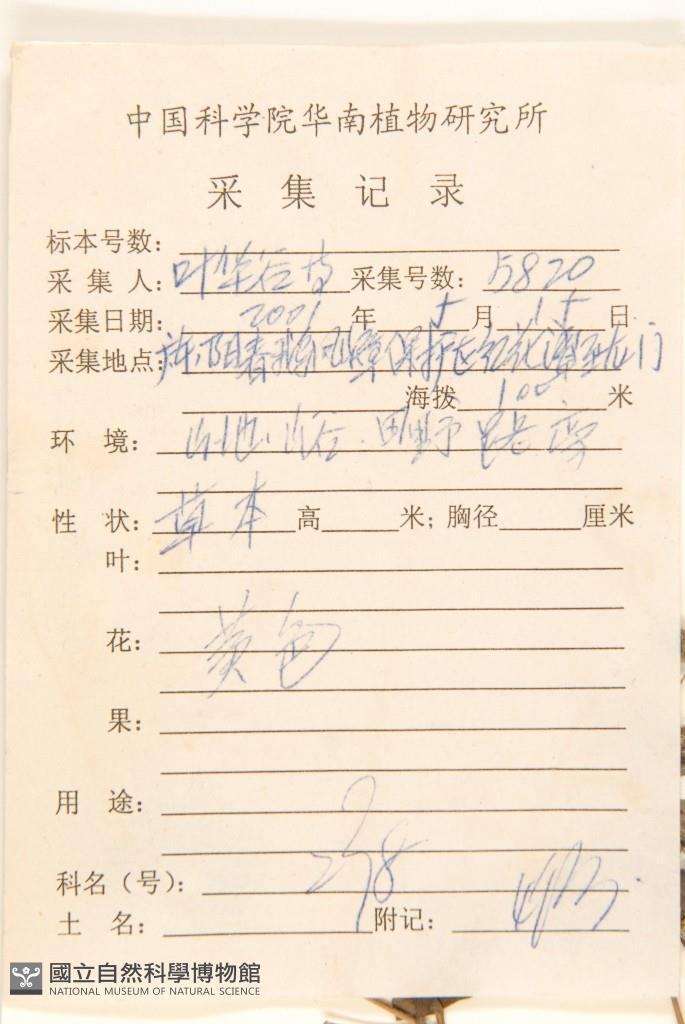 中国科学院华南植物研究所
采集记录
标本号数:
采集人: 叶华谷 采集号数: 5820
采集日期: 2001 年 5 月 15 日
采集地点: 广东阳春鹅凰嶂保护区红花潭至龙门
海拨 100 米
环境: 山地山谷.田野路旁
性状: 草本 高 米; 胸径 厘米
叶:
花: 黄色
果:
用途:
科名(号): 238
土名: 附记:
國立自然科學博物館
NATIONAL MUSEUM OF NATURAL SCIENCE